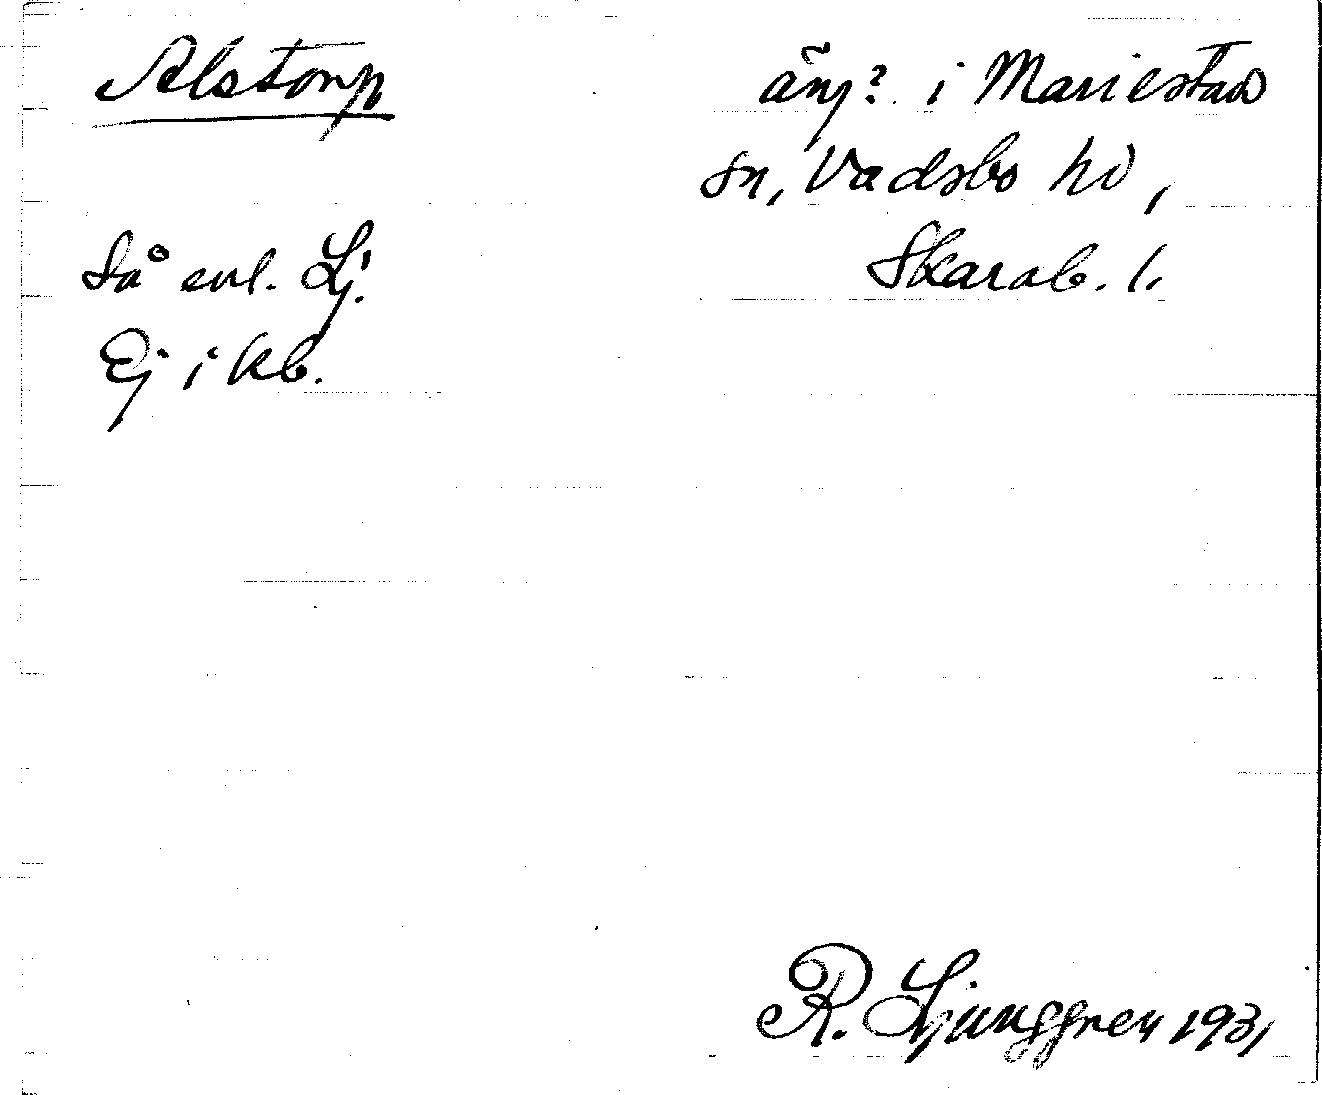 Alstorp
äng? i Mariestad
sn, Vadsbo hd,
Skarab. l.
Så enl. Lj.
Ej i kb.
R. Ljunggren 1931